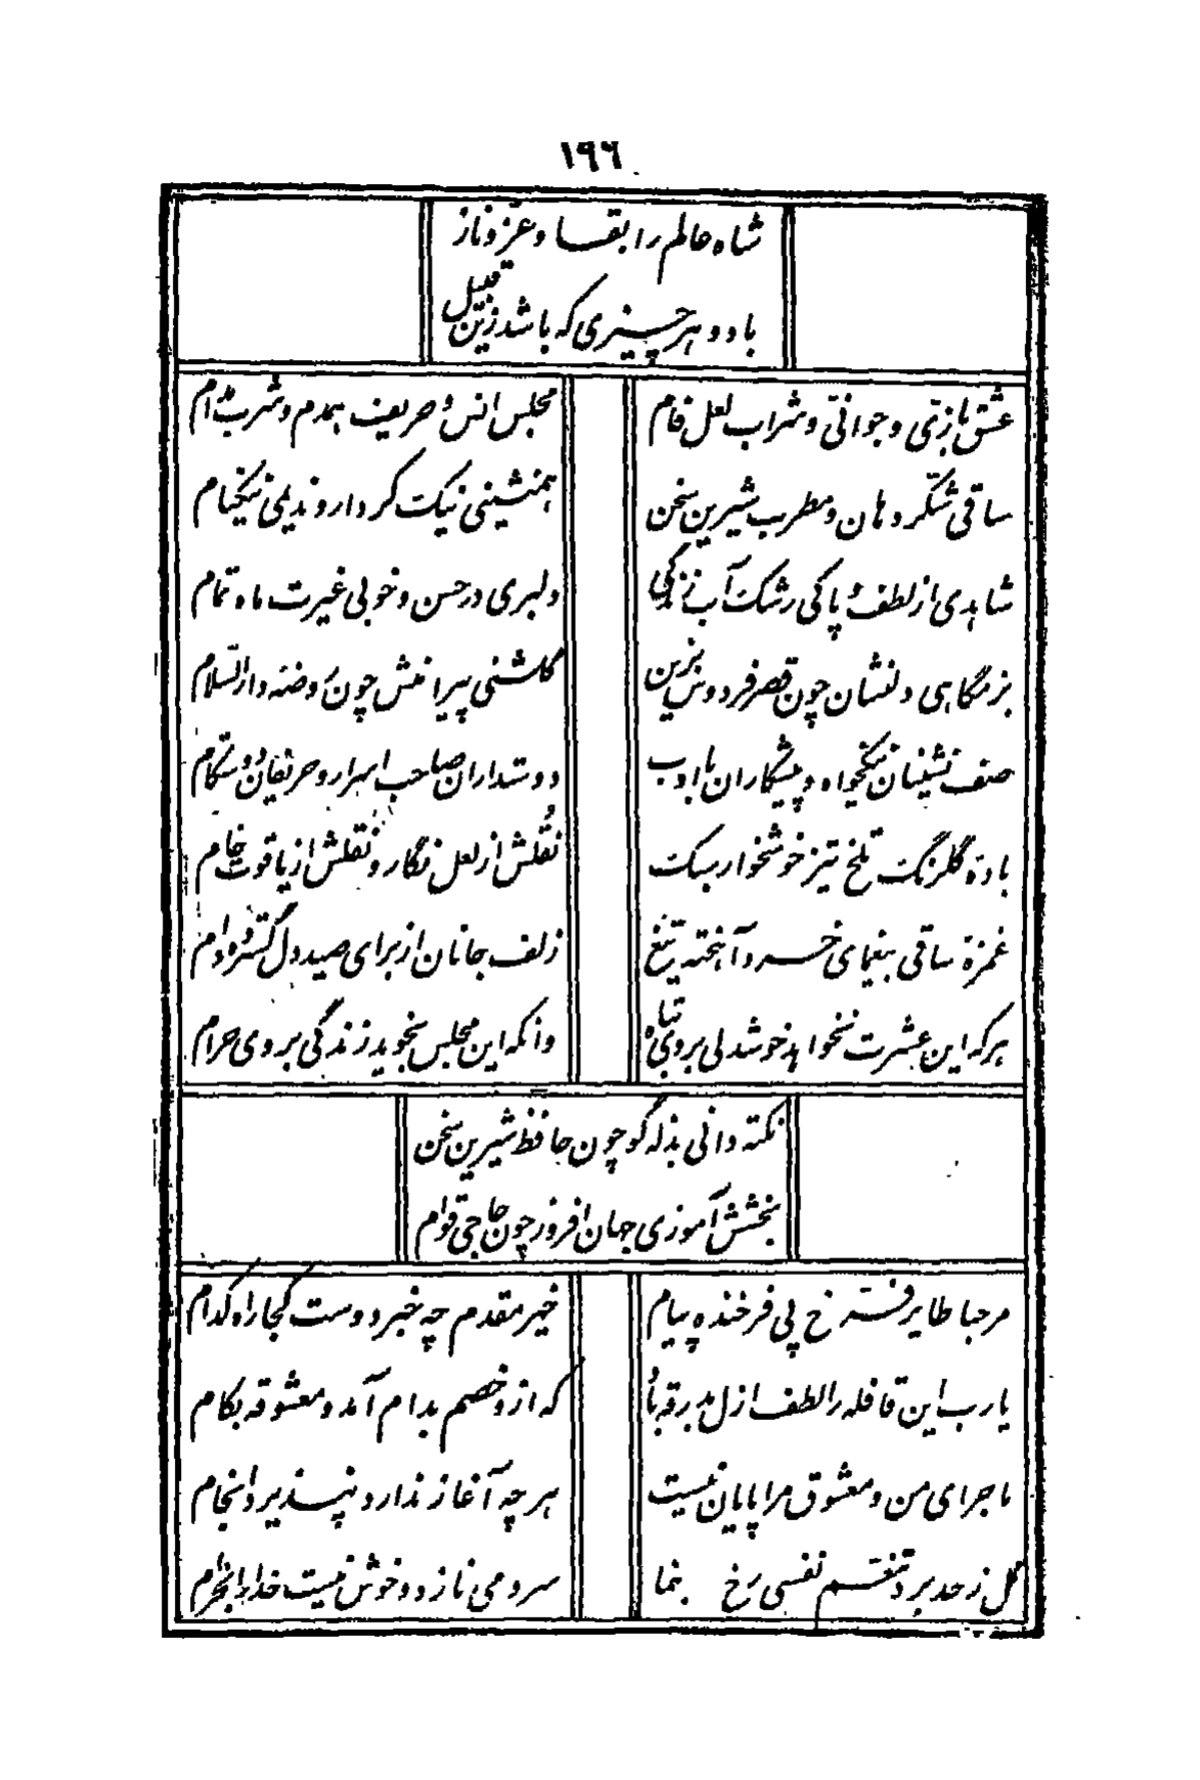 ١٩٦
شاه عالم را بقا و عزّ و ناز
باد و هر چیزی که باشد زین قبیل
عشق بازی و جوانی و شراب لعل فام
مجلس انس و حریف همدم و شرب مدام
ساقی شکّر دهان و مطرب شیرین سخن
همنشینی نیک کردار و ندیمی نیکنام
شاهدی از لطف و پاکی رشک آب زندگی
دلبری در حسن و خوبی غیرت ماه تمام
بزمگاهی دلنشان چون قصر فردوس برین
گلشنی پیرامنش چون روضه دار السّلام
صف نشینان نیکخواه و پیشکاران با ادب
دوستداران صاحب اسرار و حریفان دوستکام
باده گلرنگ تلخ تیز خوشخوار سبک
نقلش از لعل نگار و نقلش از یاقوت خام
غمزه ساقی بیغمای خرد آهخته تیغ
زلف جانان از برای صید دل گسترده دام
هر که این عشرت نخواهد خوشدلی بر وی تباه
وانکه این مجلس نجوید زندگی بر وی حرام
نکته دانی بذله گو چون حافظ شیرین سخن
بخشش آموزی جهان افروز چون حاجی قوام
مرحبا طایر فرّخ پی فرخنده پیام
خیر مقدم چه خبر دوست کجا راه کدام
یا رب این قافله را لطف ازل بدرقه باد
که ازو خصم بدام آمد و معشوقه بکام
ماجرای من و معشوق مرا پایان نیست
هر چه آغاز ندارد نپذیرد انجام
گل ز حد برد تنعّم نفسی رخ بنما
سرو می نازد و خوش نیست خدا را بخرام